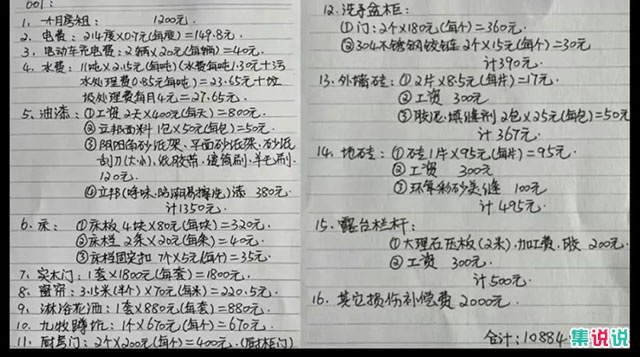 001:
1. 一个月房租: 1200元.
2. 电费: 214度×0.7元(每度)=149.8元.
3. 电动车充电费: 2辆×20元(每辆)=40元.
4. 水费: 11吨×2.15元(每吨)(水费每吨1.30元+污
水处理费0.85元每吨)=23.65元+垃
圾处理费每月4元=27.65元.
5. 油漆: ①工资2天×400元(每天)=800元.
②立邦面料1包×50元(每包)=50元.
③阴阳角砂纸架、平面砂纸架、砂纸
刮刀(大小)、纸胶带、滚筒刷、羊毛刷.
120元.
④立邦(呼吸、防潮易擦洗)漆 380元.
计1350元.
6. 床: ①床板4块×80元(每块)=320元.
②床栏2条×20元(每条)=40元.
③床栏固定扣7个×5元(每个)=35元.
7. 实木门: 1套×1800元(每套)=1800元.
8. 窗帘: 3.15米(半个)×70元(每米)=220.5元.
9. 淋浴花洒: 1套×880元(每套)=880元.
10. 九牧蹲坑: 1个×670元(每个)=670元.
11. 厨房门: 2个×200元(每个)=400元.(厨柜门)
12. 洗手盆柜:
①门: 2个×180元(每个)=360元.
②304不锈钢铰链2个×15元(每个)=30元
计390元.
13. 外墙砖: ①2片×8.5元(每片)=17元.
②工资 300元
③胶泥、填缝剂2包×25元(每包)=50元
计367元.
14. 地砖: ①砖1片×95元(每片)=95元.
②工资 300元
③环氧彩砂美缝 100元
计495元.
15. 露台栏杆:
①大理石压板(2米).加工费、胶 200元.
②工资 300元
计500元.
16. 其它损伤补偿费2000元.
合计: 10884
集说说